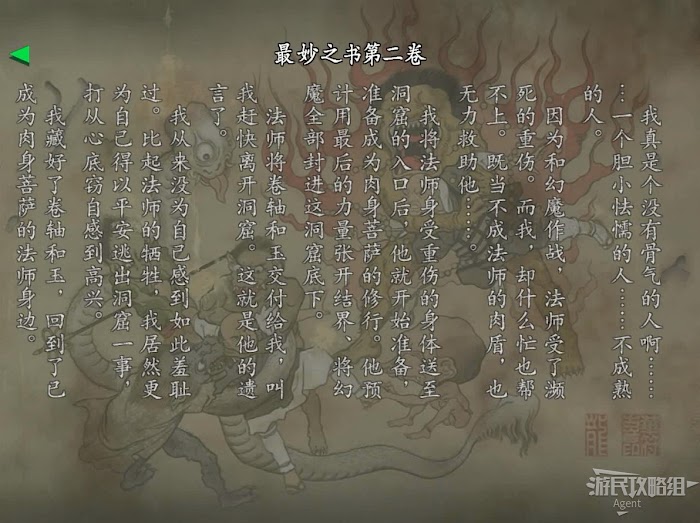 最妙之书第二卷
我真是个没有骨气的人啊……
…一个胆小怯懦的人……不成熟
的人。
因为和幻魔作战，法师受了濒
死的重伤。而我，却什么忙也帮
不上。既当不成法师的肉盾，也
无力救助他……。
我将法师身受重伤的身体送至
洞窟的入口后，他就开始准备，
准备成为肉身菩萨的修行。他预
计用最后的力量张开结界，将幻
魔全部封进这洞窟底下。
法师将卷轴和玉交付给我，叫
我赶快离开洞窟。这就是他的遗
言了。
我从来没为自己感到如此羞耻
过。比起法师的牺牲，我居然更
为自己得以平安逃出洞窟一事，
打从心底窃自感到高兴。
我藏好了卷轴和玉，回到了已
成为肉身菩萨的法师身边。
游民攻略组
Agent